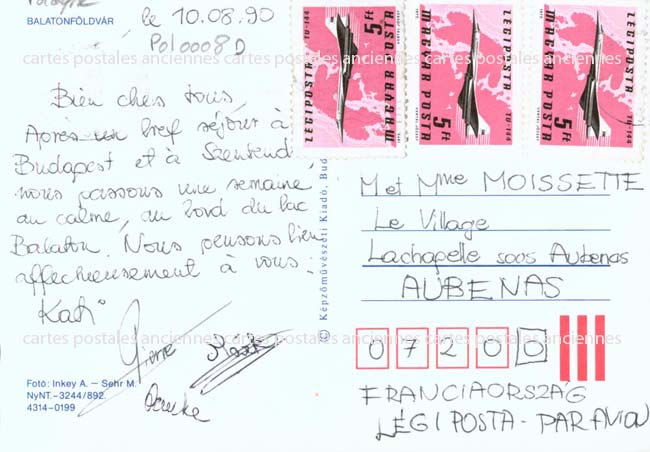 BALATONFÖLDVÁR
le 10.08.90
Pol0008D
Bien chers tous,
Après un bref séjour à
Budapest et à Szentend
nous passons une semaine
au calme, au bord du lac
Balaton. Nous pensons bien
affectueusement à vous.
Kati
Pierre
Fotó: Inkey A. – Sehr M.
NyNT.–3244/892.
4314-0199
© Képzőművészeti Kiadó, Bud
LÉGIPOSTA TU-144
5 Ft
MAGYAR POSTA
LÉGIPOSTA TU-144
5 Ft
MAGYAR POSTA
LÉGIPOSTA TU-144
5 Ft
MAGYAR POSTA
M et Mme MOISSETTE
Le Village
Lachapelle sous Aubenas
AUBENAS
07200
FRANCIAORSZÁG
LÉGIPOSTA - PAR AVION
cartes postales anciennes cartes postales anciennes cartes postales anciennes
cartes postales anciennes cartes postales anciennes cartes postales anciennes